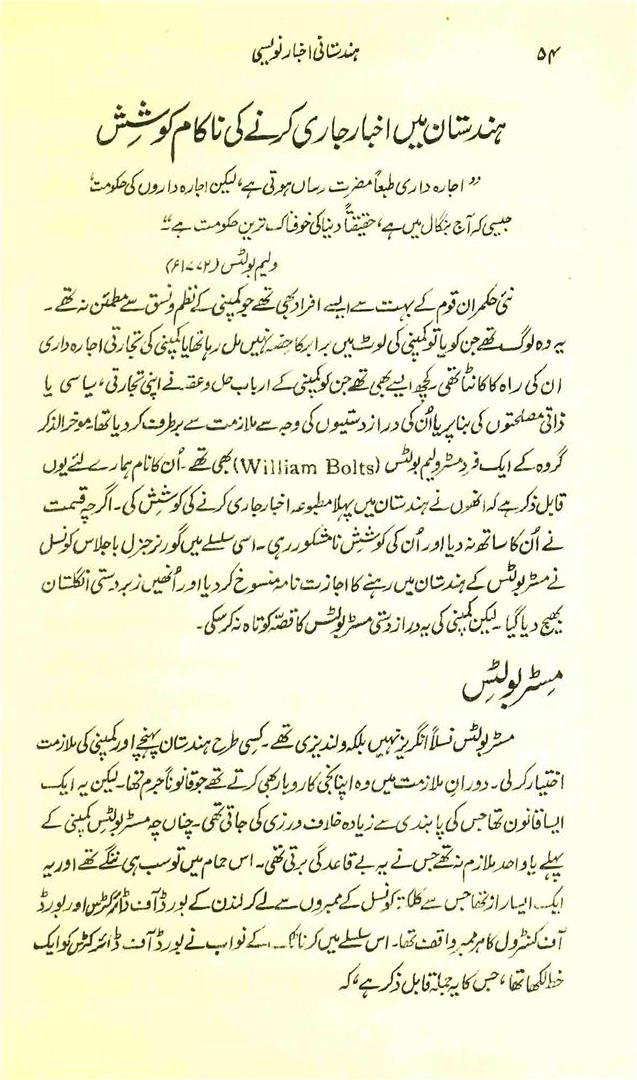 ۵۴ ہندستانی اخبار نویسی
ہندستان میں اخبار جاری کرنے کی ناکام کوشِش
”اجارہ داری طبعاً مضرت رساں ہوتی ہے، لیکن اجارہ داروں کی حکومت،
جیسی کہ آج بنگال میں ہے، حقیقتاً دنیا کی خوفناک ترین حکومت ہے“
ولیم بولٹس (۱۷۷۲ء)
نئی حکمران قوم کے بہت سے ایسے افراد بھی تھے جو کمپنی کے نظم و نسق سے مطمئن نہ تھے۔
یہ وہ لوگ تھے جن کو یا تو کمپنی کی لوٹ میں برابر کا حصہ نہیں مل رہا تھا یا کمپنی کی تجارتی اجارہ داری
ان کی راہ کا کانٹا تھی۔ کچھ ایسے بھی تھے جن کو کمپنی کے ارباب حل و عقد نے اپنی تجارتی، سیاسی یا
ذاتی مصلحتوں کی بنا پر یا اُن کی دراز دستیوں کی وجہ سے ملازمت سے برطرف کر دیا تھا۔ موخر الذکر
گروہ کے ایک فرد مسٹر ولیم بولٹس (William Bolts) بھی تھے۔ اُن کا نام ہمارے لئے یوں
قابل ذکر ہے کہ انھوں نے ہندستان میں پہلا مطبوعہ اخبار جاری کرنے کی کوشش کی۔ اگرچہ قسمت
نے اُن کا ساتھ نہ دیا اور اُن کی کوشش نامشکور رہی۔ اسی سلسلے میں گورنر جنرل باجلاس کونسل
نے مسٹر بولٹس کے ہندستان میں رہنے کا اجازت نامہ منسوخ کر دیا اور اُنھیں زبردستی انگلستان
بھیج دیا گیا۔ لیکن کمپنی کی یہ دراز دستی مسٹر بولٹس کا قصّہ کوتاہ نہ کر سکی۔
مسِٹر بولٹِس
مسٹر بولٹس نسلاً انگریز نہیں بلکہ ولندیزی تھے۔ کسی طرح ہندستان پہنچے اور کمپنی کی ملازمت
اختیار کر لی۔ دورانِ ملازمت میں وہ اپنا نجی کاروبار بھی کرتے تھے جو قانوناً جرم تھا۔ لیکن یہ ایک
ایسا قانون تھا جس کی پابندی سے زیادہ خلاف ورزی کی جاتی تھی۔ چناں چہ مسٹر بولٹس کمپنی کے
پہلے یا واحد ملازم نہ تھے جس نے یہ بے قاعدگی برتی تھی۔ اس حمام میں تو سب ہی ننگے تھے اور یہ
ایک ایسا راز تھا جس سے کلکتہ کونسل کے ممبروں سے لے کر لندن کے بورڈ آف ڈائرکٹرس اور بورڈ
آف کنٹرول کا ہر ممبر واقف تھا۔ اس سلسلے میں کرناٹک کے نواب نے بورڈ آف ڈائرکٹرس کو ایک
خط لکھا تھا، جس کا یہ جملہ قابل ذکر ہے، کہ